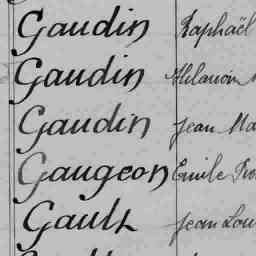 Gaudin Raphaël
Gaudin Hilarion
Gaudin Jean Ma
Gaugeon Emile
Gault Jean Lou